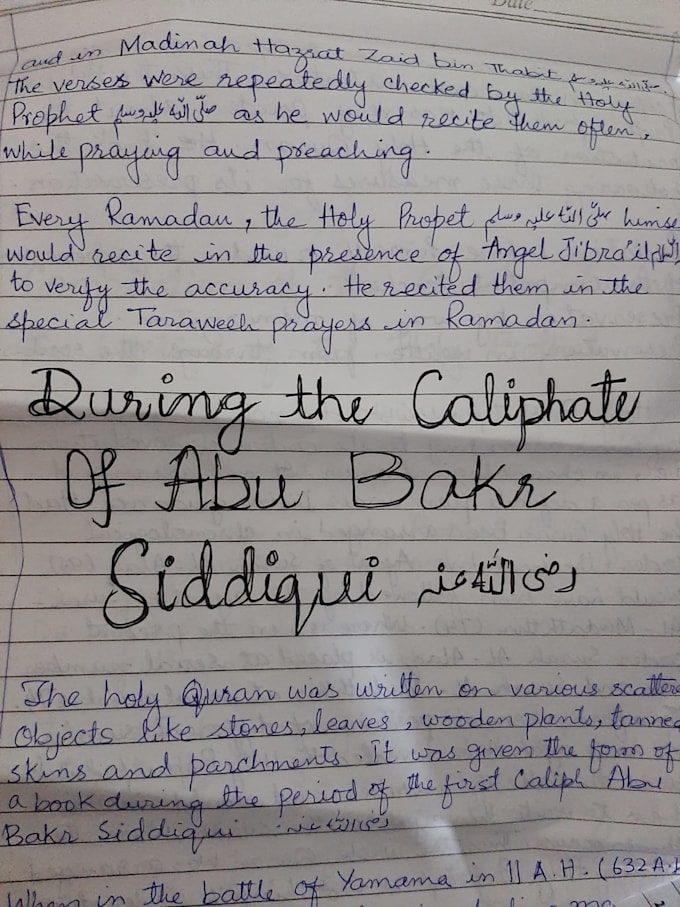 Date
and in Madinah Hazrat Zaid bin Thabit
The verses were repeatedly checked by the Holy
Prophet صلى الله عليه وسلم as he would recite them often,
while praying and preaching.
Every Ramadan, the Holy Propet صلى الله عليه وسلم himse
would recite in the presence of Angel Jibra'il
to verify the accuracy. He recited them in the
special Taraweeh prayers in Ramadan.
During the Caliphate
Of Abu Bakr
Siddiqui رضى الله عنہ
The holy Quran was written on various scattere
Objects like stones, leaves, wooden plants, tanned
skins and parchments. It was given the form of
a book during the period of the first Caliph Abu
Bakr Siddiqui رضى الله عنہ
When in the battle of Yamama in 11 A.H. (632 A.